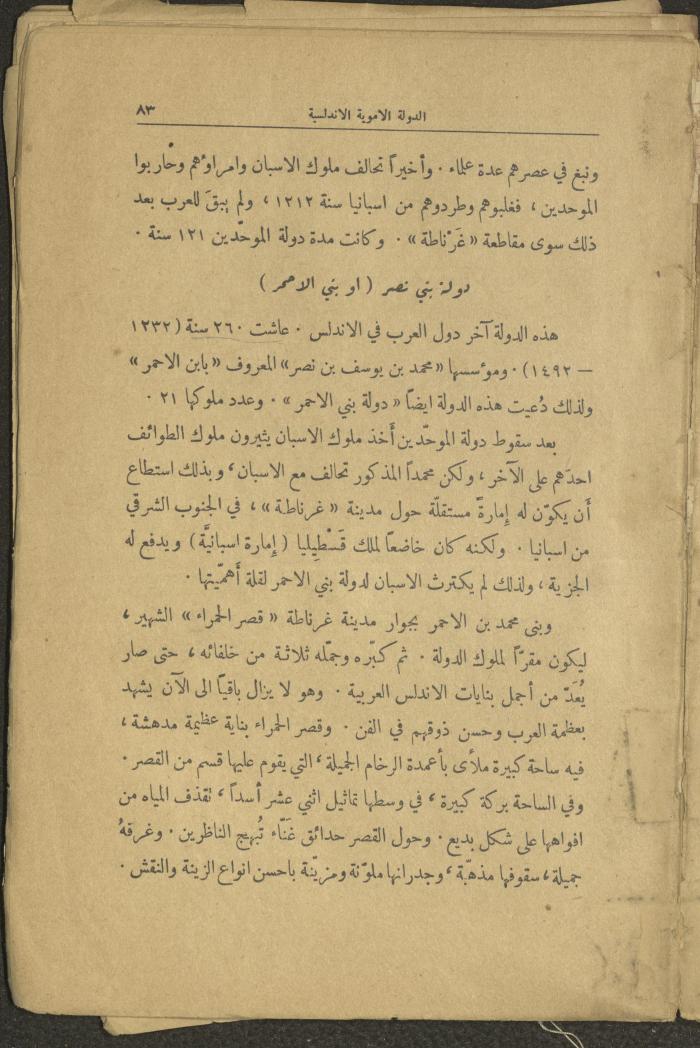 الدولة الاموية الاندلسية ٨٣
ونبغ في عصرهم عدة علماء . وأخيراً تحالف ملوك الاسبان وامراؤهم وحاربوا
الموحدين ، فغلبوهم وطردوهم من اسبانيا سنة ١٢١٢ ، ولم يبقَ للعرب بعد
ذلك سوى مقاطعة « غَرْناطة » . وكانت مدة دولة الموحّدين ١٢١ سنة .
دولة بني نصر ( او بني الاحمر )
هذه الدولة آخر دول العرب في الاندلس . عاشت ٢٦٠ سنة ( ١٢٣٢
— ١٤٩٢ ) . ومؤسسها « محمد بن يوسف بن نصر » المعروف « بابن الاحمر »
ولذلك دُعيت هذه الدولة ايضاً « دولة بني الاحمر » . وعدد ملوكها ٢١ .
بعد سقوط دولة الموحّدين أَخذ ملوك الاسبان يثيرون ملوك الطوائف
احدَهم على الآخر ، ولكن محمداً المذكور تحالف مع الاسبان ، وبذلك استطاع
أَن يكوّن له إِمارةً مستقلّة حول مدينة « غرناطة » ، في الجنوب الشرقي
من اسبانيا . ولكنه كان خاضعاً لملك قَسْطِيليا ( إِمارة اسبانيَّة ) ويدفع له
الجزية ، ولذلك لم يكترث الاسبان لدولة بني الاحمر لقلة أَهمّيتها .
وبنى محمد بن الاحمر بجوار مدينة غرناطة « قصر الحمراء » الشهير ،
ليكون مقرّاً لملوك الدولة . ثم كبّره وجمّله ثلاثة من خلفائه ، حتى صار
يُعَدّ من أجمل بنايات الاندلس العربية . وهو لا يزال باقياً الى الآن يشهد
بعظمة العرب وحسن ذوقهم في الفن . وقصر الحمراء بناية عظيمة مدهشة ،
فيه ساحة كبيرة ملأى بأعمدة الرخام الجميلة ، التي يقوم عليها قسم من القصر .
وفي الساحة بركة كبيرة ، في وسطها تماثيل اثني عشر أسداً ، تقذف المياه من
افواهها على شكل بديع . وحول القصر حدائق غَنّاء تُبهج الناظرين . وغرفهُ
جميلة ، سقوفها مذهّبة ، وجدرانها ملوّنة ومزيّنة باحسن انواع الزينة والنقش .